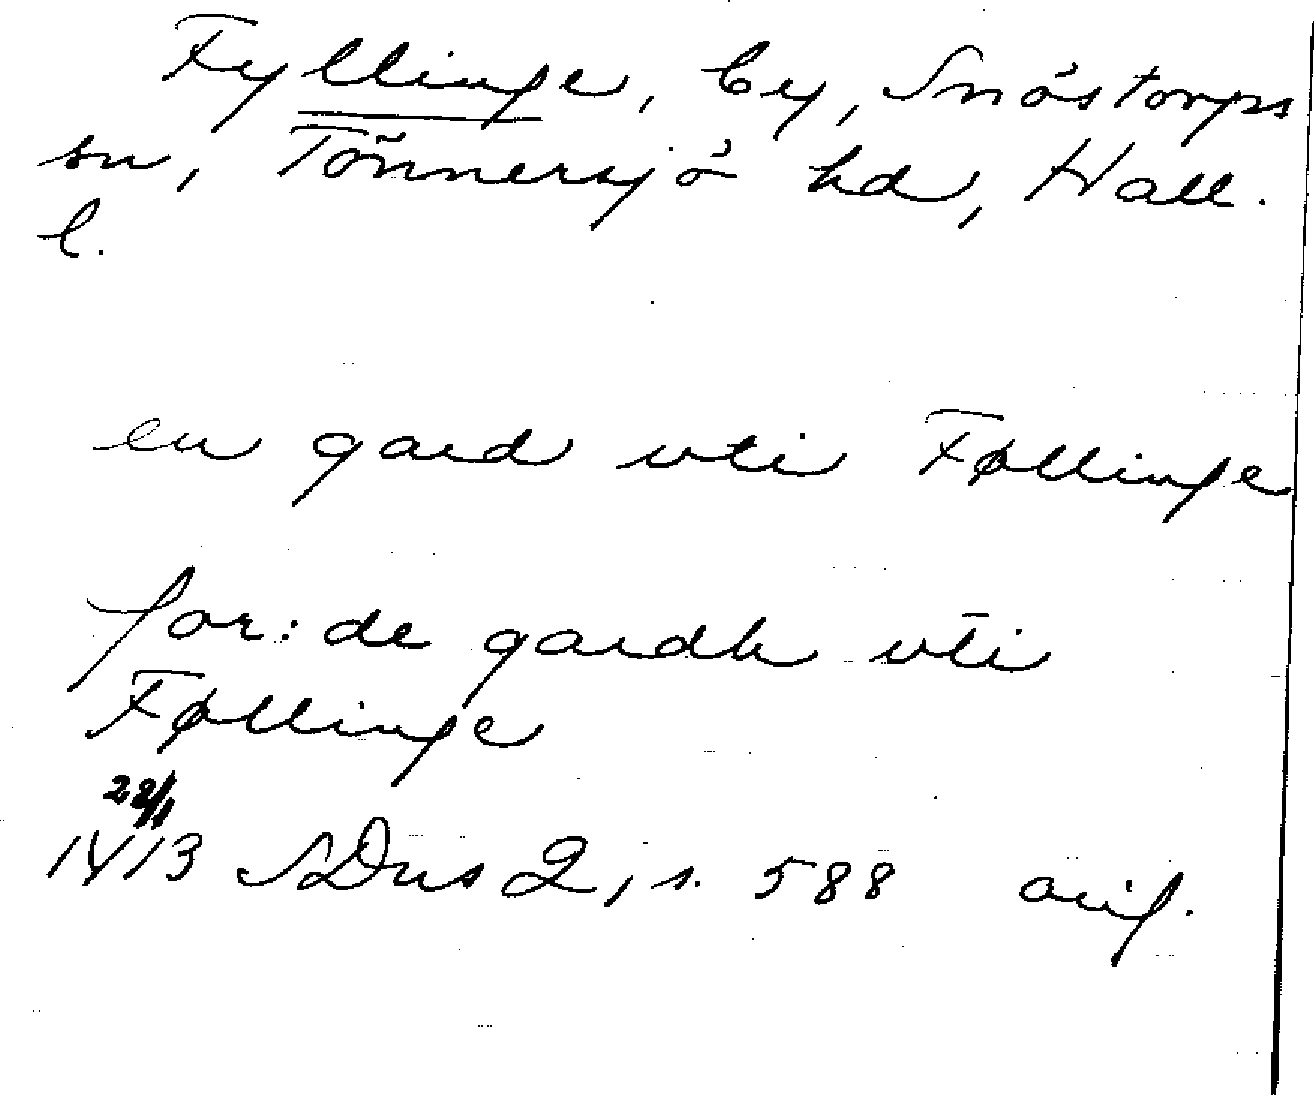 Fyllinge, by, Snöstorps
sn, Tönnersjö hd, Hall.
l.
en gard vti Føllinge
for: de gardh vti
Føllinge
22/1
1413 SDns 2, s. 588 orig.